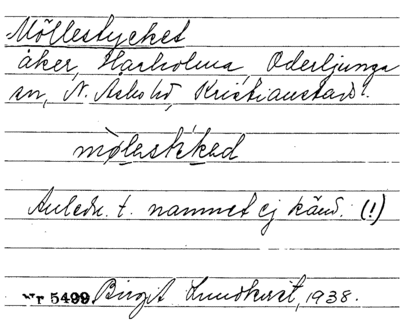 Möllestycket
åker, Harholma, Oderljunga
sn, N. Åsbo hd, Kristianstads l.
mølestikəd
Anledn. t. namnet ej känd. (!)
Nr 5499. Birgit Lundkvist, 1938.